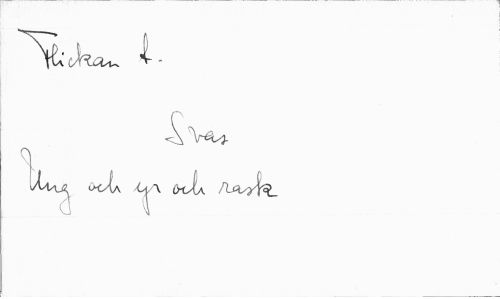 Flickan t.
Svar
Ung och yr och rask